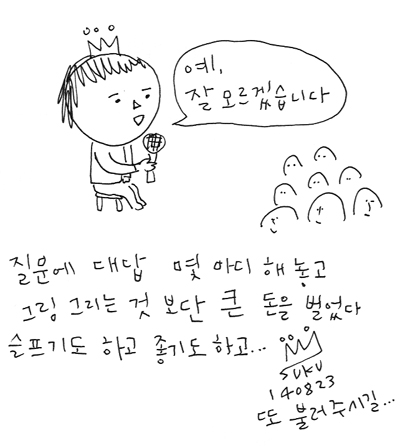 예,
잘 모르겠습니다
질문에 대답 몇 마디 해 놓고
그림 그리는 것 보단 큰 돈을 벌었다
슬프기도 하고 좋기도 하고...
SUKU
140823
또 불러주시길...